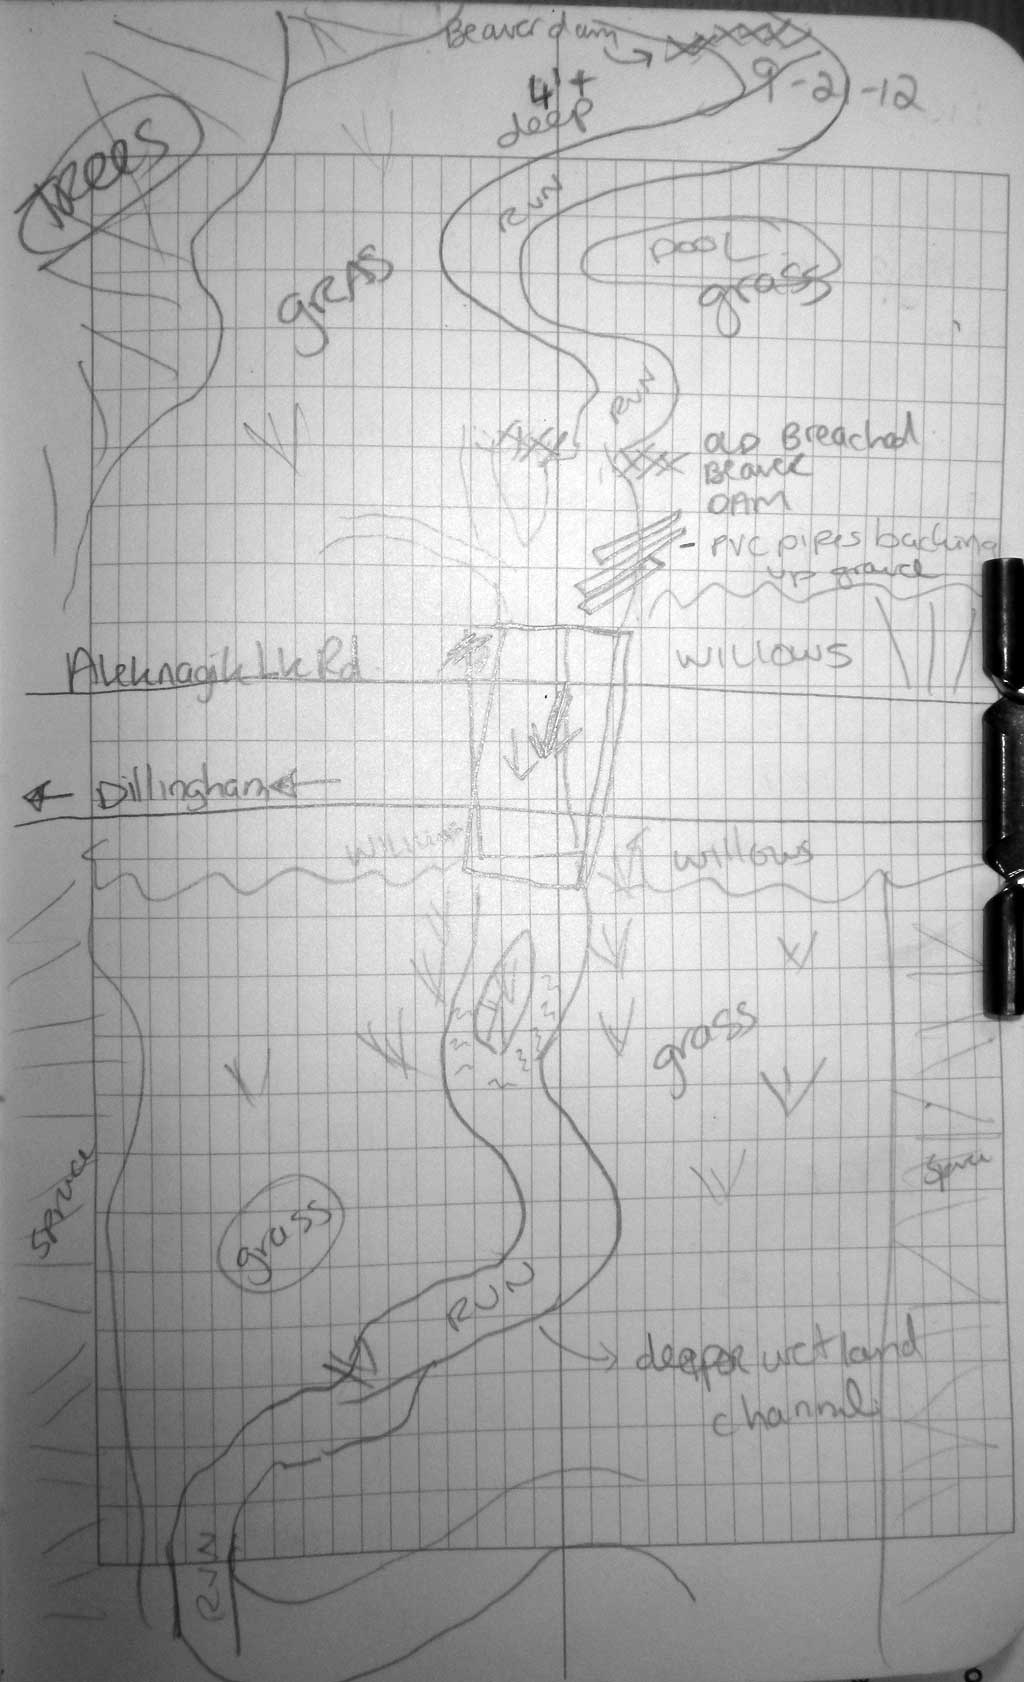 Beaver dam
9-2-12
4'+
deep
Trees
RUN
POOL
grass
GRASS
RUN
OLD Breached
Beaver
DAM
- PVC pipes backing
up gravel
Aleknagik Lk Rd
WILLOWS
Dillingham
Willows
willows
grass
Spruce
Spruce
grass
RUN
deeper wetland
channel
RUN